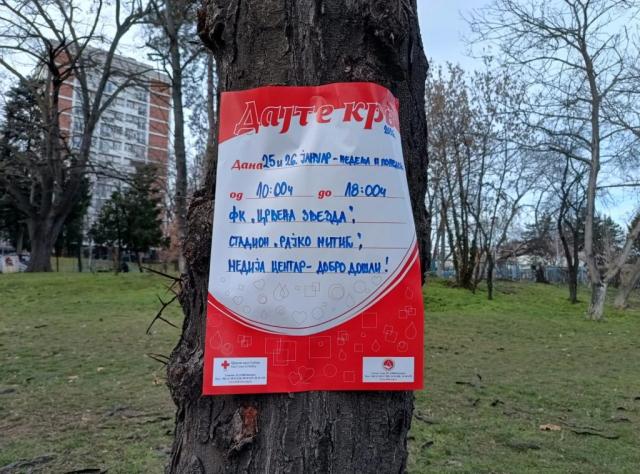 Дајте крв
Дана 25 и 26. ЈАНУАР - НЕДЕЉА И
од 10:00ч до 18:00ч
ФК „ЦРВЕНА ЗВЕЗДА",
СТАДИОН „РАЈКО МИТИЋ",
МЕДИЈА ЦЕНТАР - ДОБРО ДОШЛИ!